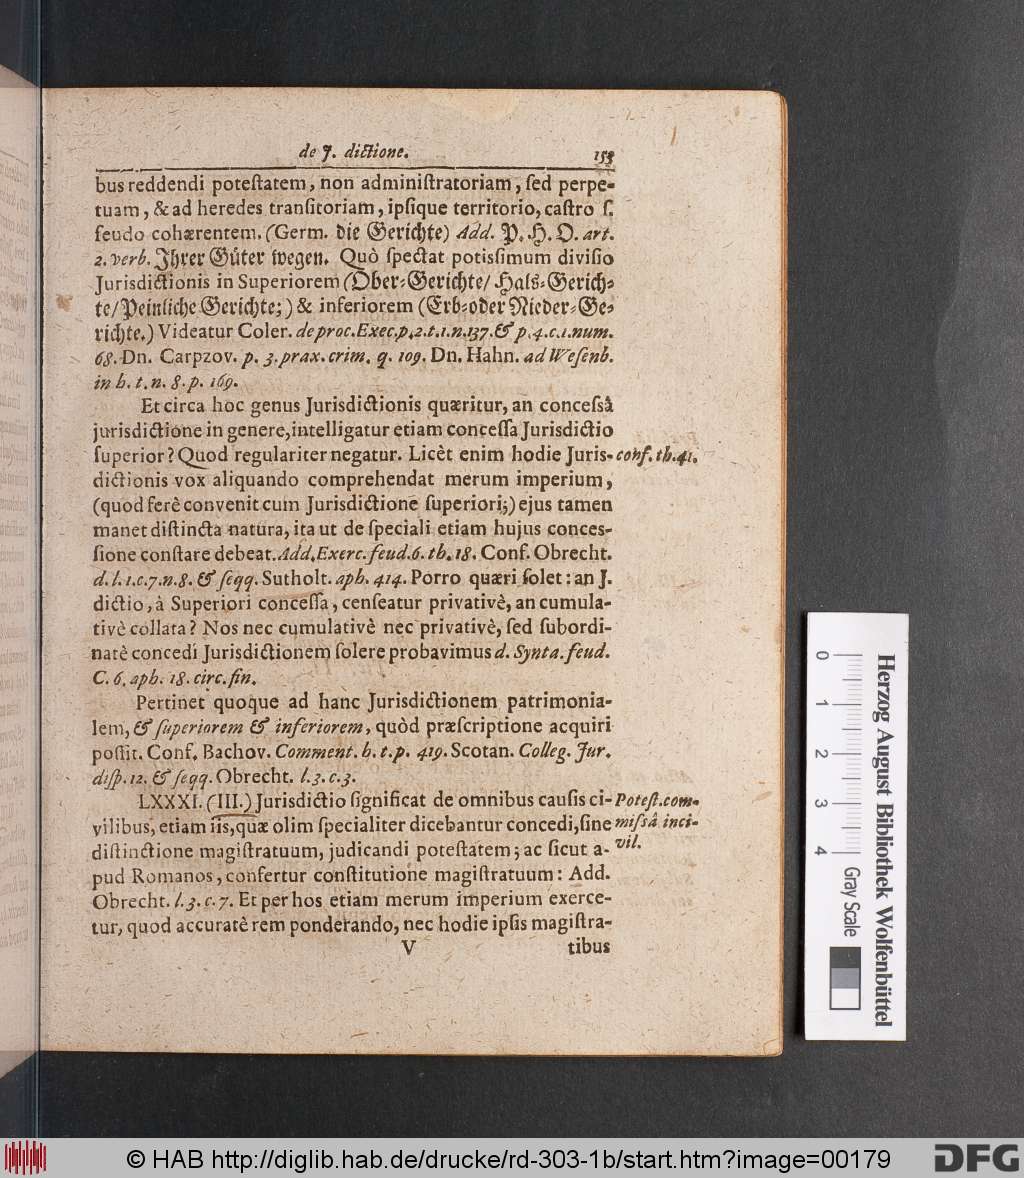 de J. dictione.
153
bus reddendi poteſtatem, non adminiſtratoriam, ſed perpe-
tuam, & ad heredes tranſitoriam, ipſique territorio, caſtro ſ.
feudo cohærentem. (Germ. die Gerichte) Add. P. H. O. art.
2. verb. Ihrer Güter wegen. Quò ſpectat potiſsimum diviſio
Jurisdictionis in Superiorem (Ober-Gerichte/ Hals-Gerich-
te/ Peinliche Gerichte;) & inferiorem (Erb-oder Nieder-Ge-
richte.) Videatur Coler. de proc. Exec. p. 2. t. 1. n. 137. & p. 4. c. 1. num.
68. Dn. Carpzov. p. 3. prax. crim. q. 109. Dn. Hahn. ad Weſenb.
in h. t. n. 8. p. 169.
Et circa hoc genus Jurisdictionis quæritur, an conceſsâ
jurisdictione in genere, intelligatur etiam conceſſa Jurisdictio
ſuperior? Quod regulariter negatur. Licèt enim hodie Juris-
conf. th. 41.
dictionis vox aliquando comprehendat merum imperium,
(quod ferè convenit cum Jurisdictione ſuperiori;) ejus tamen
manet diſtincta natura, ita ut de ſpeciali etiam hujus conceſ-
ſione conſtare debeat. Add. Exerc. feud. 6. th. 18. Conf. Obrecht.
d. l. 1. c. 7. n. 8. & ſeqq. Sutholt. aph. 414. Porro quæri ſolet: an J.
dictio, à Superiori conceſſa, cenſeatur privativè, an cumula-
tivè collata? Nos nec cumulativè nec privativè, ſed ſubordi-
natè concedi Jurisdictionem ſolere probavimus d. Synta. feud.
C. 6. aph. 18. circ. fin.
Pertinet quoque ad hanc Jurisdictionem patrimonia-
lem, & ſuperiorem & inferiorem, quòd præſcriptione acquiri
poſſit. Conf. Bachov. Comment. h. t. p. 419. Scotan. Colleg. Jur.
diſp. 12. & ſeqq. Obrecht. l. 3. c. 3.
LXXXI. (III.) Jurisdictio ſignificat de omnibus cauſis ci-
Poteſt. com-
vilibus, etiam iis, quæ olim ſpecialiter dicebantur concedi, ſine
miſsâ inci-
diſtinctione magiſtratuum, judicandi poteſtatem; ac ſicut a-
vil.
pud Romanos, confertur conſtitutione magiſtratuum: Add.
Obrecht. l. 3. c. 7. Et per hos etiam merum imperium exerce-
tur, quod accuratè rem ponderando, nec hodie ipſis magiſtra-
V
tibus
0 1 2 3 4
Gray Scale
Herzog August Bibliothek Wolfenbüttel
© HAB http://diglib.hab.de/drucke/rd-303-1b/start.htm?image=00179
DFG